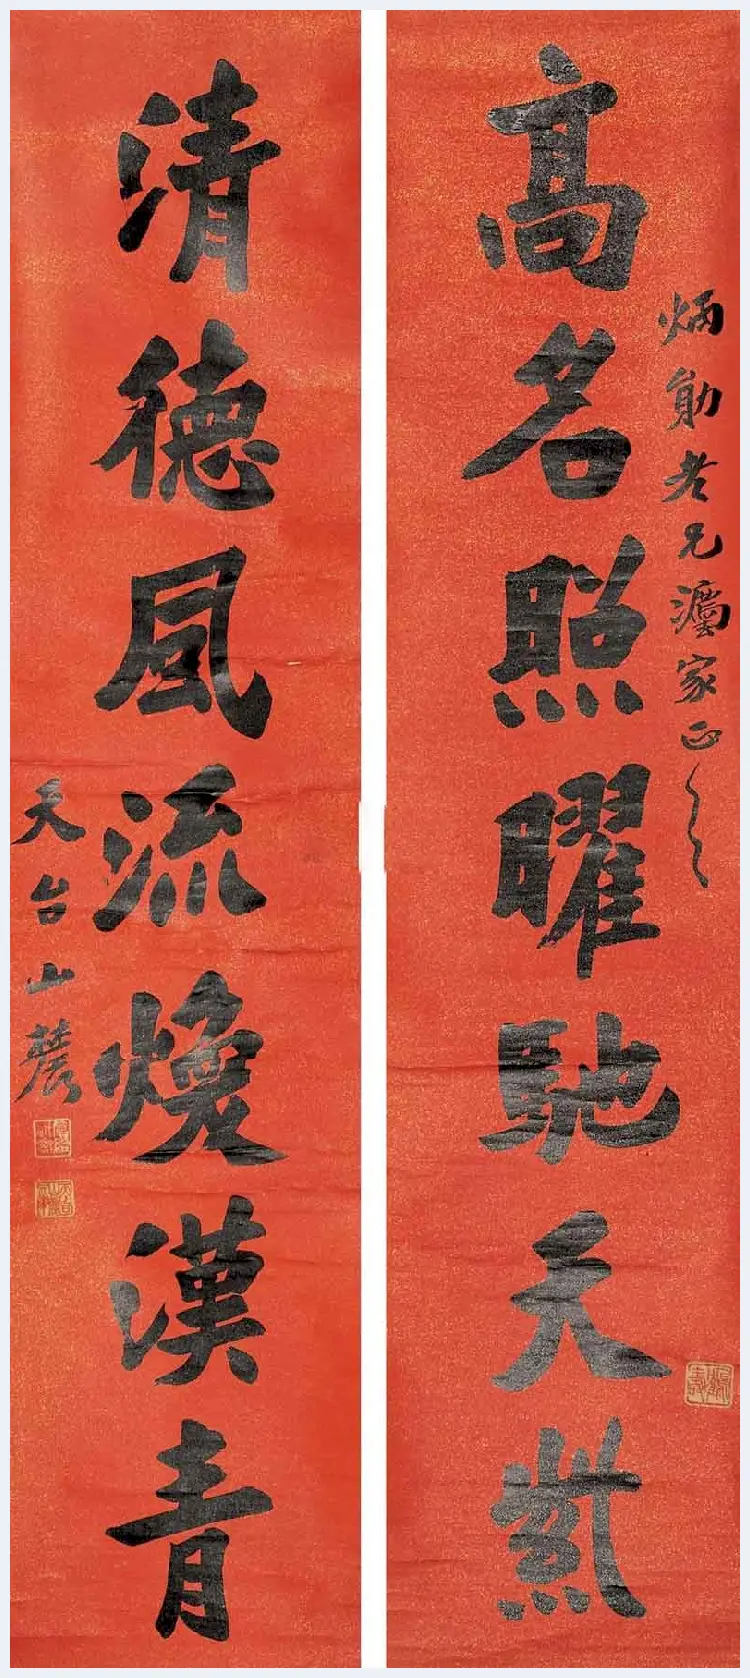 炳勛老兄灋家正之
高名照曜馳天
清德風流煥漢青
天台山農